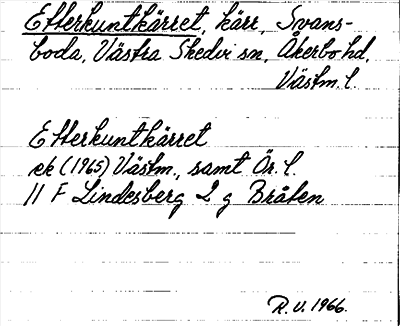 Etterkuntkärret, kärr, Svans-
boda, Västra Skedvi sn, Åkerbo hd,
Västm. l.
Etterkuntkärret
ek (1965) Västm., samt Ör. l.
11 F Lindesberg 2 g Bråten
R.U. 1966.